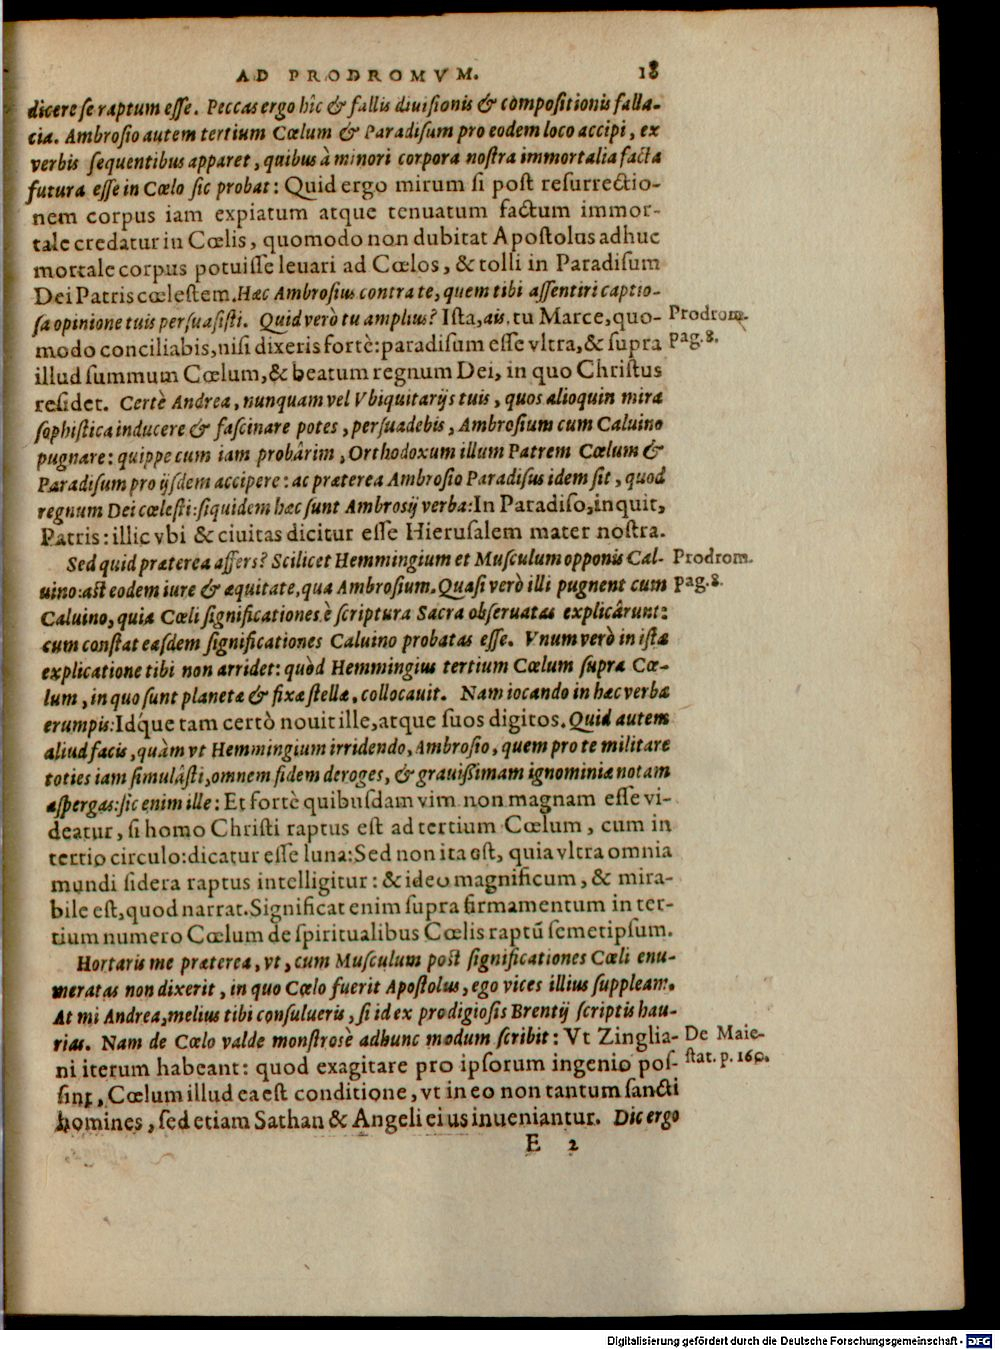 AD PRODROMVM. 18
dicere se raptum esse. Peccas ergo hîc & fallis diuisionis & compositionis falla-
cia. Ambrosio autem tertium Cœlum & Paradisum pro eodem loco accipi, ex
verbis sequentibus apparet, quibus à minori corpora nostra immortalia facta
futura esse in Cœlo sic probat: Quid ergo mirum si post resurrectio-
nem corpus iam expiatum atque tenuatum factum immor-
tale credatur in Cœlis, quomodo non dubitat Apostolus adhuc
mortale corpus potuisse leuari ad Cœlos, & tolli in Paradisum
Dei Patris cœlestem. Hæc Ambrosius contra te, quem tibi assentiri captio-
sa opinione tuis persuasisti. Quid verò tu amplius? Ista, ais, tu Marce, quo-
Prodrom.
modo conciliabis, nisi dixeris fortè: paradisum esse vltra, & supra
pag. 8.
illud summum Cœlum, & beatum regnum Dei, in quo Christus
residet. Certè Andrea, nunquam vel Vbiquitarijs tuis, quos alioquin mira
sophistica inducere & fascinare potes, persuadebis, Ambrosium cum Caluino
pugnare: quippe cum iam probârim, Orthodoxum illum Patrem Cœlum &
Paradisum pro ijsdem accipere: ac præterea Ambrosio Paradisus idem sit, quod
regnum Dei cœlesti: siquidem hæc sunt Ambrosij verba: In Paradiso, inquit,
Patris: illic vbi & ciuitas dicitur esse Hierusalem mater nostra.
Sed quid præterea affers? Scilicet Hemmingium et Musculum opponis Cal-
Prodrom.
uino: ast eodem iure & æquitate, qua Ambrosium. Quasi verò illi pugnent cum
pag. 8.
Caluino, quia Cœli significationes è scriptura Sacra obseruatas explicârunt:
cum constat easdem significationes Caluino probatas esse. Vnum verò in ista
explicatione tibi non arridet: quòd Hemmingius tertium Cœlum supra Cœ-
lum, in quo sunt planetæ & fixæ stellæ, collocauit. Nam iocando in hæc verba
erumpis: Idq́ue tam certò nouit ille, atque suos digitos. Quid autem
aliud facis, quàm vt Hemmingium irridendo, Ambrosio, quem pro te militare
toties iam simulâsti, omnem fidem deroges, & grauißimam ignominiæ notam
aspergas: sic enim ille: Et fortè quibusdam vim non magnam esse vi-
deatur, si homo Christi raptus est ad tertium Cœlum, cum in
tertio circulo: dicatur esse luna: Sed non ita est, quia vltra omnia
mundi sidera raptus intelligitur: & ideo magnificum, & mira-
bile est, quod narrat. Significat enim supra firmamentum in ter-
tium numero Cœlum de spiritualibus Cœlis raptū semetipsum.
Hortaris me præterea, vt, cum Musculum post significationes Cœli enu-
meratas non dixerit, in quo Cœlo fuerit Apostolus, ego vices illius suppleam.
At mi Andrea, melius tibi consulueris, si id ex prodigiosis Brentij scriptis hau-
rias. Nam de Cœlo valde monstrosè adhunc modum scribit: Vt Zinglia-
De Maie-
ni iterum habeant: quod exagitare pro ipsorum ingenio pos-
stat. p. 160.
sint, Cœlum illud ea est conditione, vt in eo non tantum sancti
homines, sed etiam Sathan & Angeli eius inueniantur. Dic ergo
E 2
Digitalisierung gefördert durch die Deutsche Forschungsgemeinschaft - DFG